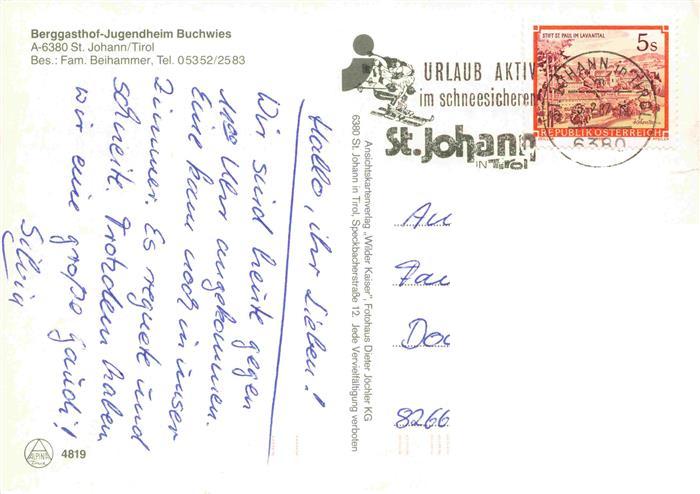 Berggasthof-Jugendheim Buchwies
A-6380 St. Johann/Tirol
Bes.: Fam. Beihammer, Tel. 05352/2583
Hallo, ihr Lieben!
Wir sind heute gegen
Uhr angekommen.
Eine kam noch in unser
Zimmer. Es regnete und
schneite. Trotzdem haben
wir eine große Gaudi!
Silvia
Ansichtskartenverlag „Wilder Kaiser", Fotohaus Dieter Jöchler KG
6380 St. Johann in Tirol, Speckbacherstraße 12. Jede Vervielfältigung verboten
URLAUB AKTIV
im schneesicheren
St. Johann
IN Tirol
STIFT ST. PAUL IM LAVANTTAL
5 S
REPUBLIK ÖSTERREICH
JOHANN in TIROL
6380
An
Fa
Do
8266
ALPINA
4819